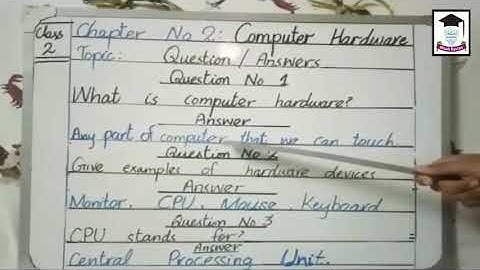 Class 2
Chapter No 2: Computer Hardware
Topic: Question / Answers
Question No 1
What is computer hardware?
Answer
Any part of computer that we can touch.
Question No 2
Give examples of hardware devices
Answer
Monitor, CPU, Mouse, Keyboard
Question No 3
CPU stands for?
Answer
Central Processing Unit.